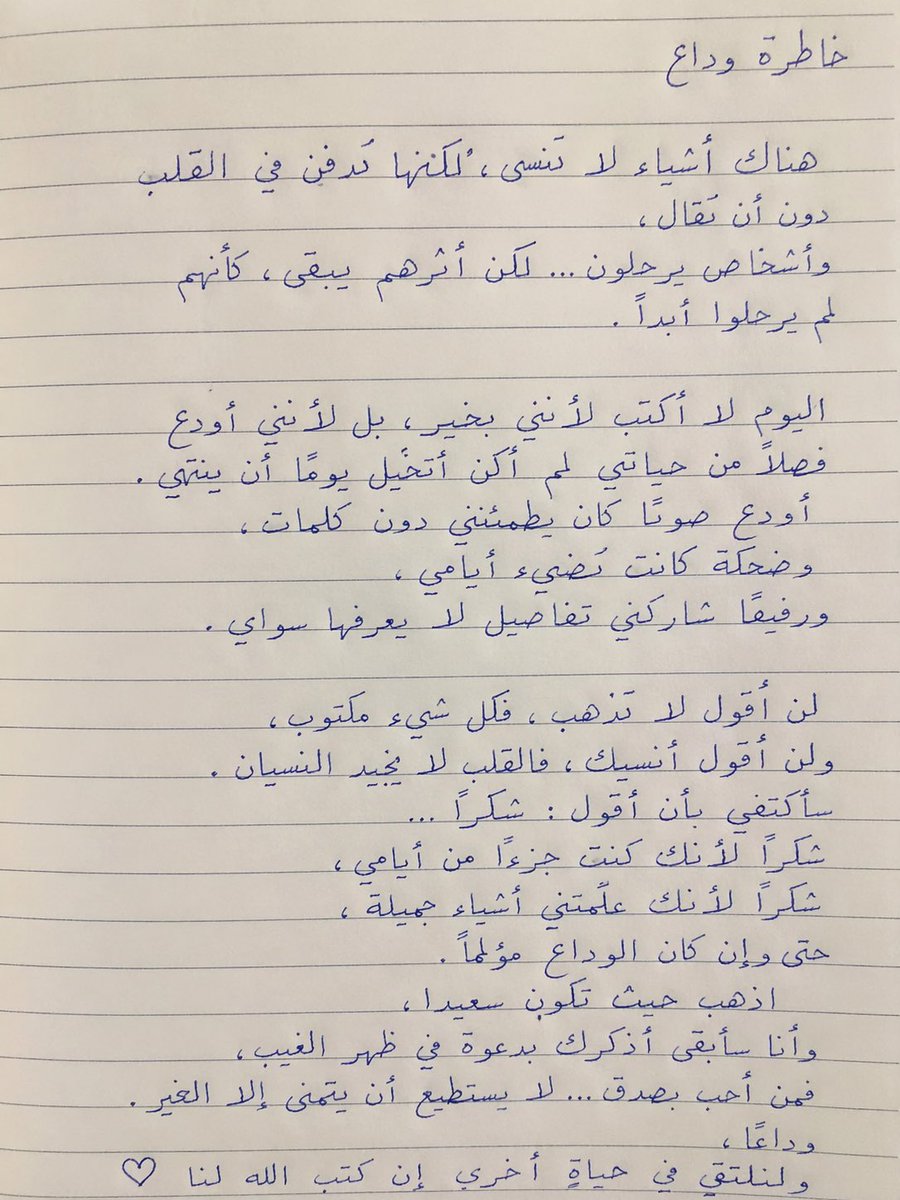 خاطرة وداع
هناك أشياء لا تُنسى، لكننها تُدفن في القلب
دون أن تُقال،
وأشخاص يرحلون... لكن أثرهم يبقى، كأنهم
لم يرحلوا أبداً.
اليوم لا أكتب لأنني بخير، بل لأنني أودع
فصلاً من حياتي لم أكن أتخيّل يومًا أن ينتهي.
أودع صوتًا كان يطمئنني دون كلمات،
وضحكة كانت تُضيء أيامي،
ورفيقًا شاركني تفاصيل لا يعرفها سواي.
لن أقول لا تذهب، فكل شيء مكتوب،
ولن أقول أنسيك، فالقلب لا يُجيد النسيان.
سأكتفي بأن أقول: شكراً...
شكراً لأنك كنت جزءًا من أيامي،
شكراً لأنك علّمتني أشياء جميلة،
حتى وإن كان الوداع مؤلماً.
اذهب حيث تكون سعيدا،
وأنا سأبقى أذكرك بدعوة في ظهر الغيب،
فمن أحب بصدق... لا يستطيع أن يتمنى إلا الغير.
وداعًا،
ولنلتقي في حياةٍ أخري إن كتب الله لنا ♡